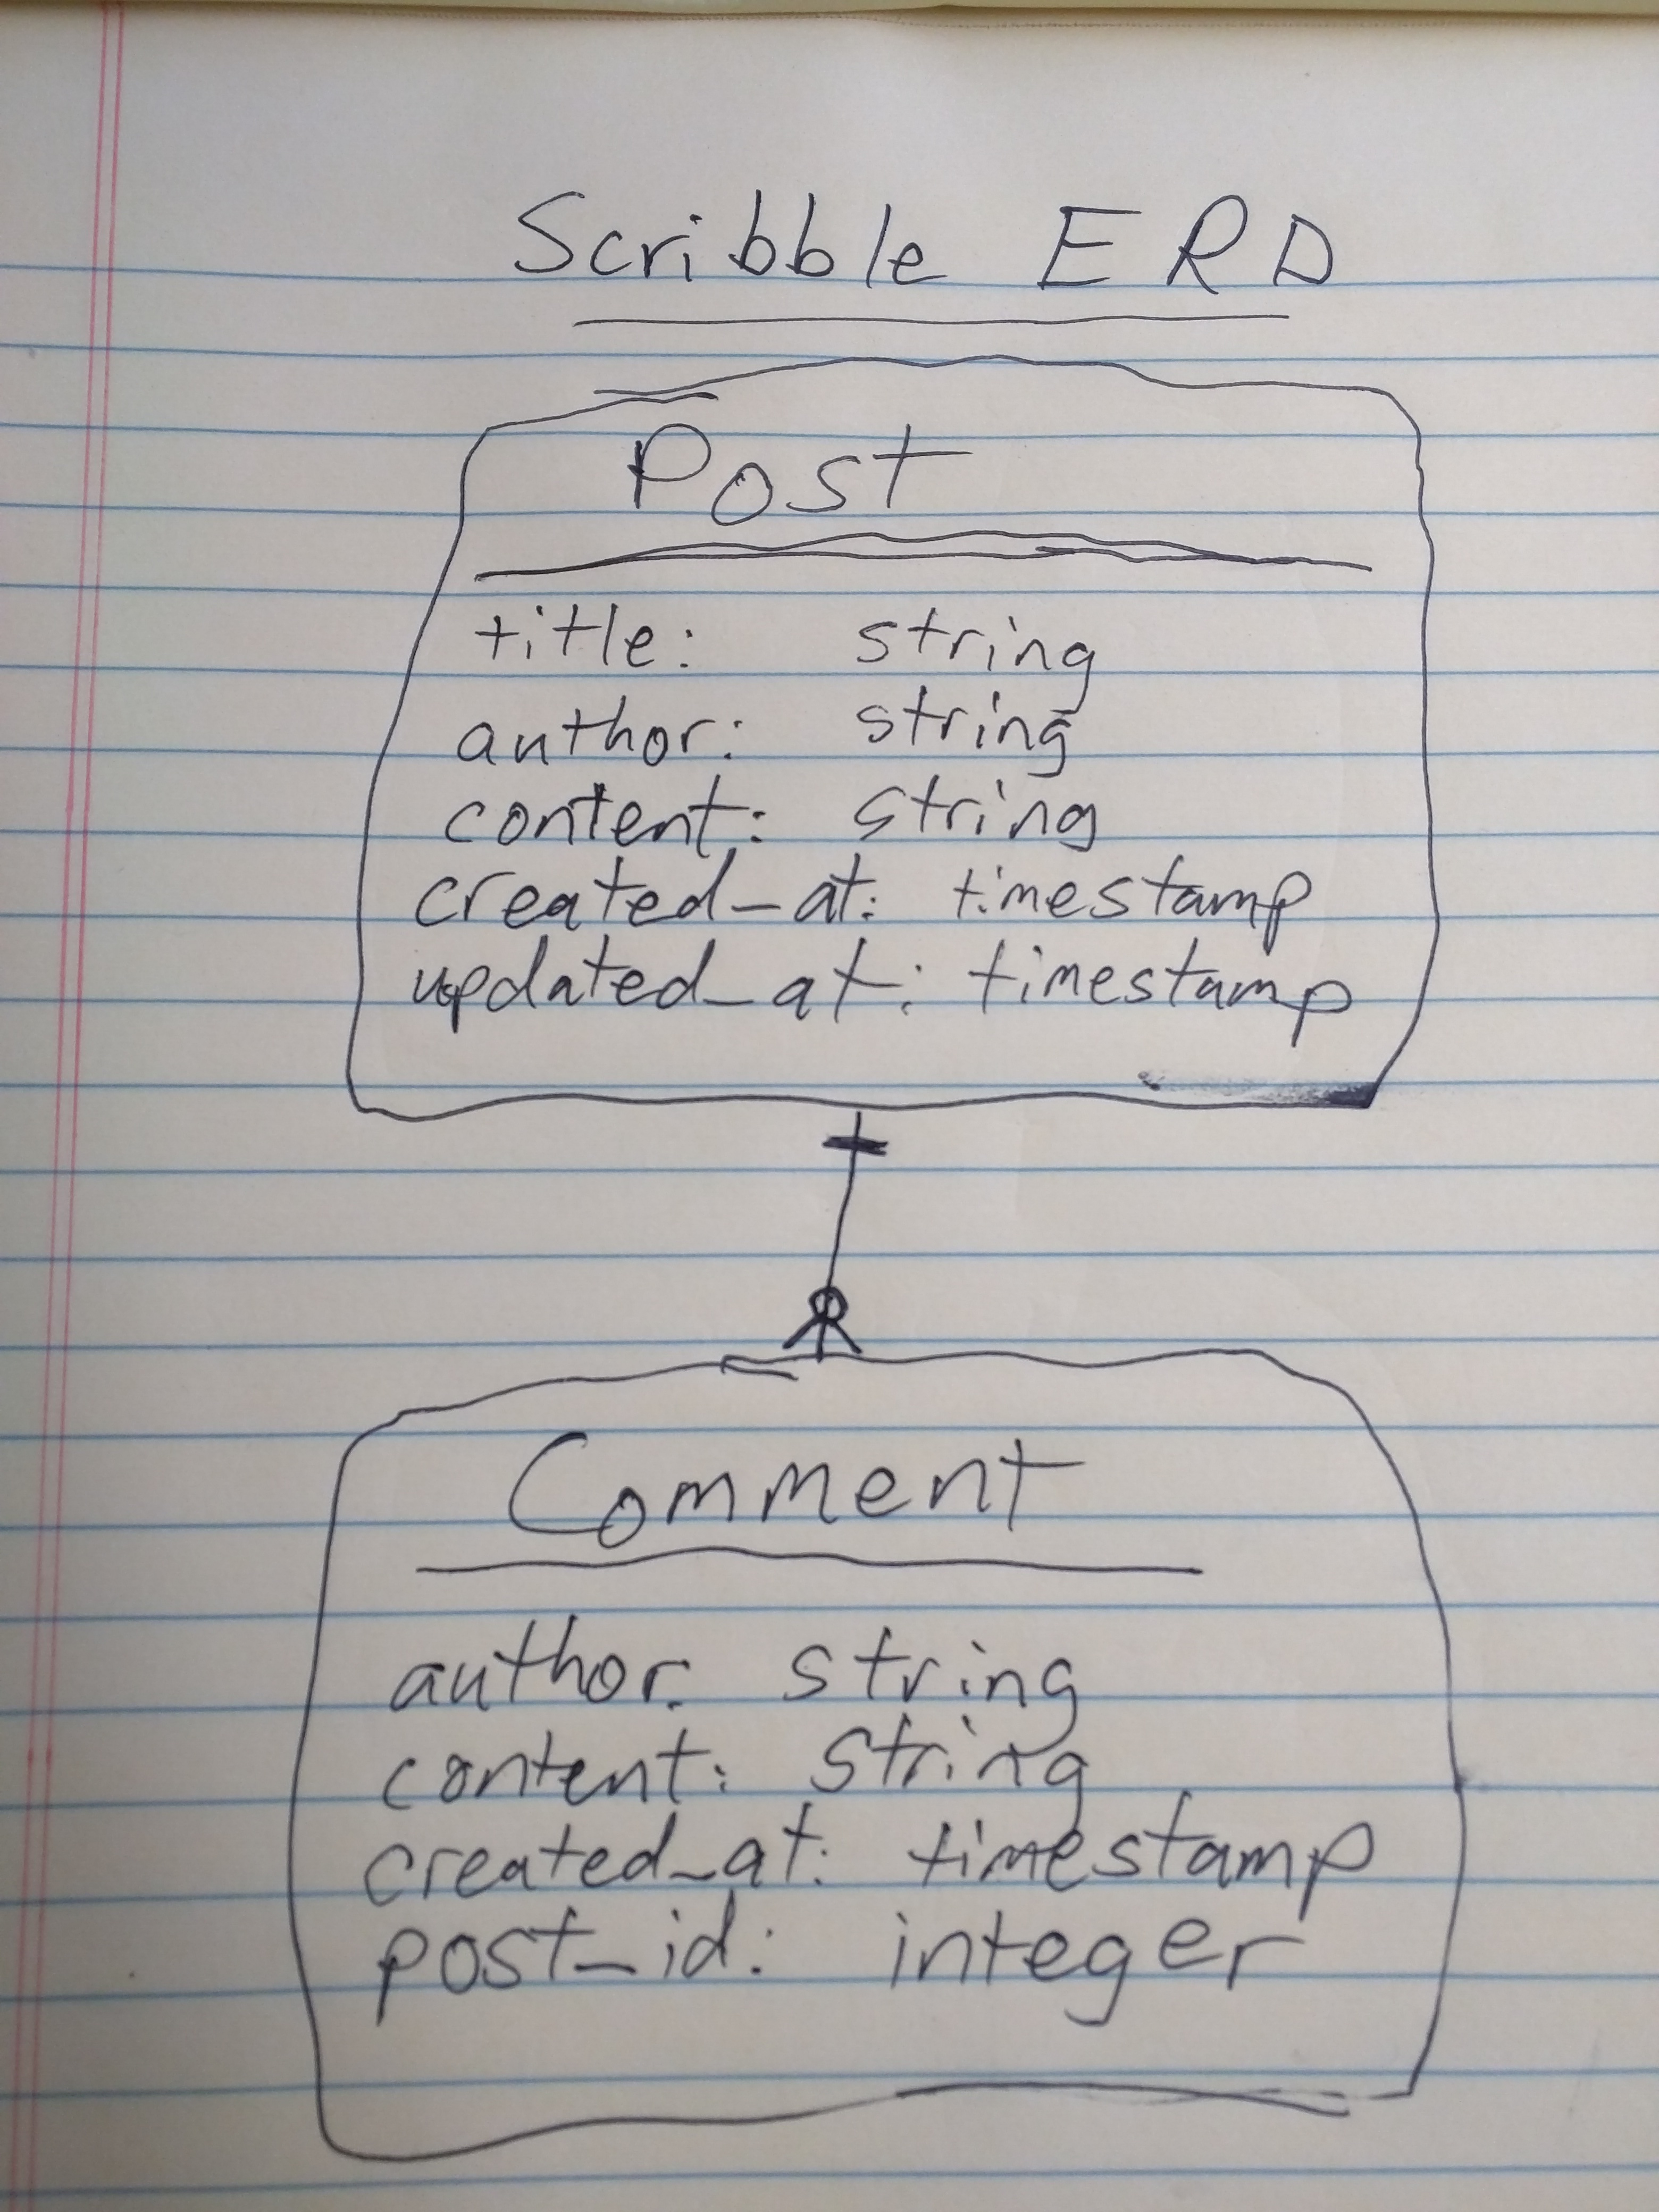 Scribble ERD
Post
title: string
author: string
content: string
created_at: timestamp
updated_at: timestamp
Comment
author: string
content: string
created_at: timestamp
post_id: integer